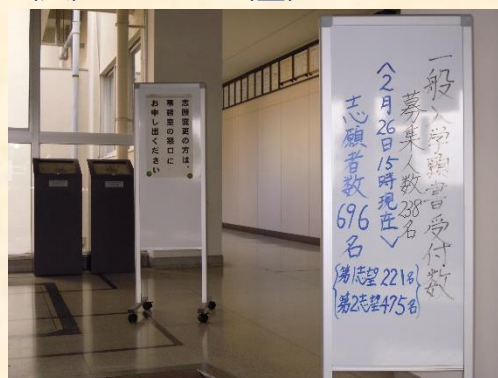 一般入学願書受付数
募集人数238名
〈2月26日15時現在〉
志願者数696名
第1志望221名
第2志望475名
志願変更の方は、
事務室の窓口に
お申し出ください